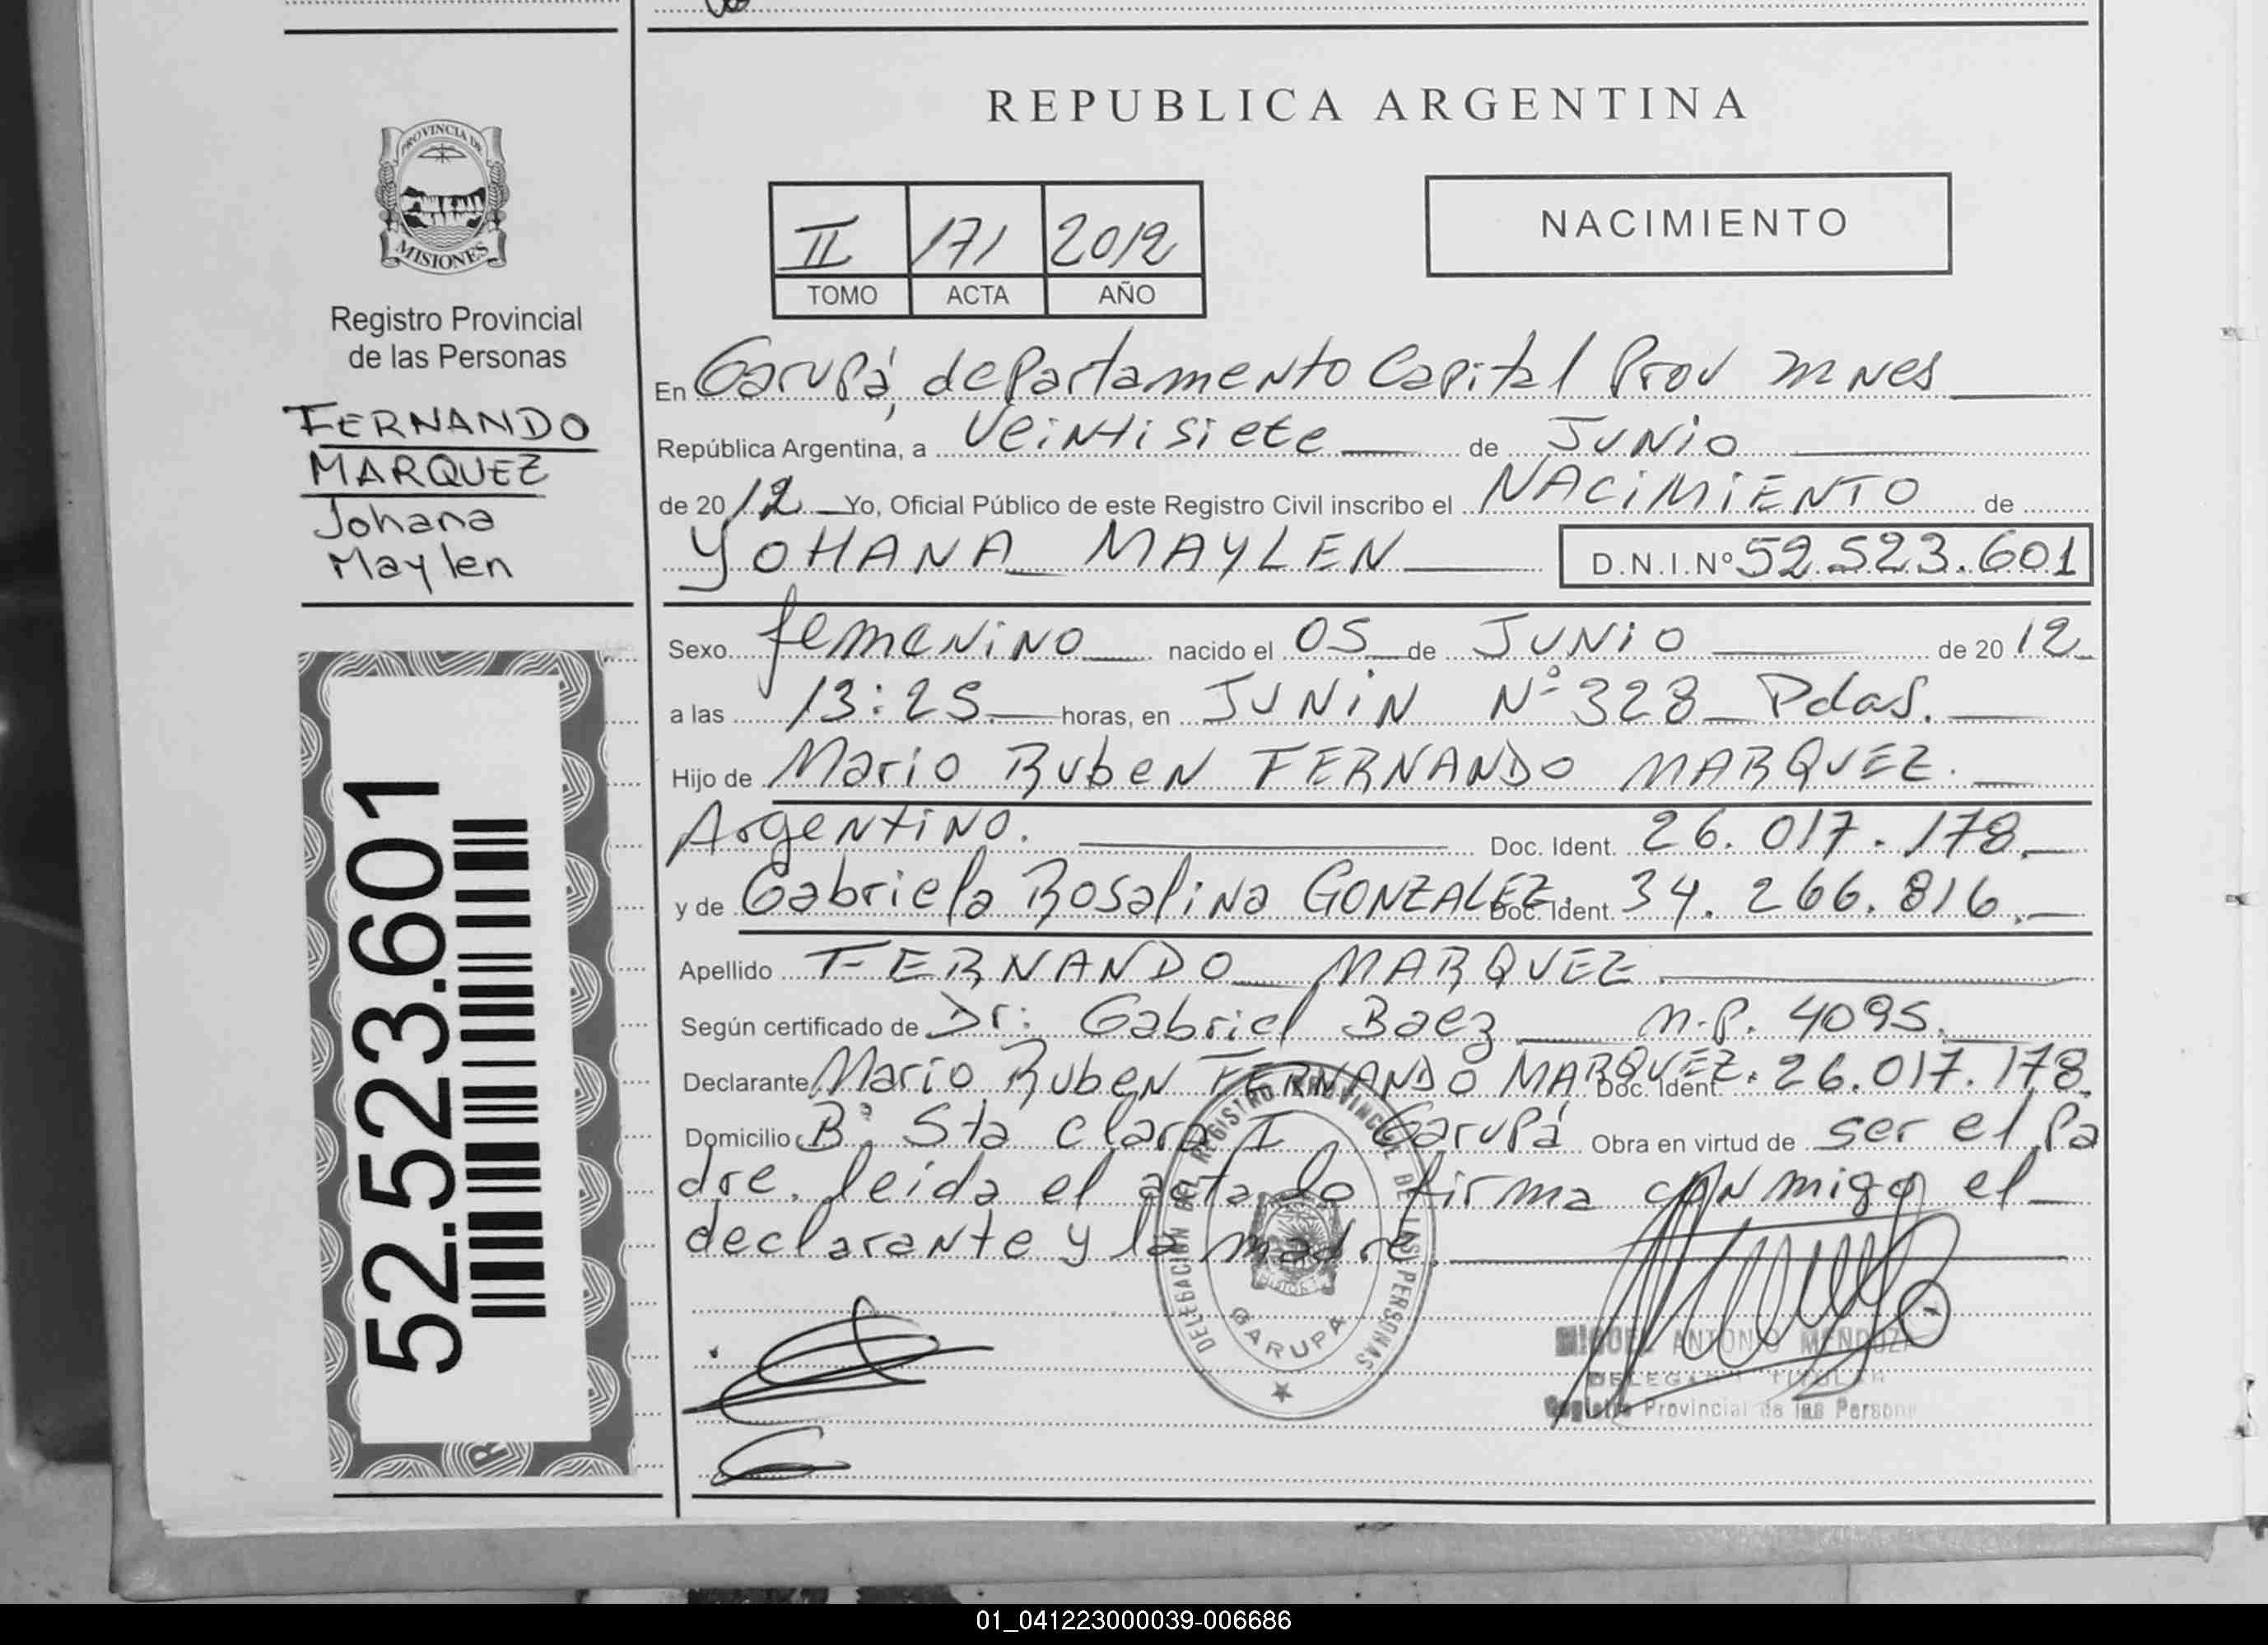 REPUBLICA ARGENTINA
PROVINCIA DE
MISIONES
Registro Provincial
de las Personas
FERNANDO
MARQUEZ
Johana
Maylen
52.523.601
II 171 2012
TOMO ACTA AÑO
NACIMIENTO
En Garupá, departamento Capital Prov mnes
República Argentina, a Veintisiete de Junio
de 2012 Yo, Oficial Público de este Registro Civil inscribo el NACIMIENTO de
YOHANA MAYLEN D.N.I.Nº 52.523.601
Sexo femenino nacido el 05 de JUNIO de 2012
a las 13:25 horas, en JUNIN Nº 328 Pdas.
Hijo de Mario Ruben FERNANDO MARQUEZ.
Argentino. Doc. Ident. 26.017.178.
y de Gabriela Rosalina GONZALEZ. Doc. Ident. 34.266.816.
Apellido FERNANDO MARQUEZ
Según certificado de Dr: Gabriel Baez M.P. 4095.
Declarante Mario Ruben FERNANDO MARQUEZ. Doc. Ident. 26.017.178
Domicilio Bº Sta Clara I Garupá Obra en virtud de ser el Pa
dre. leida el acta lo firma conmigo el
declarante y la madre.
DELEGACION DEL REGISTRO PROVINCIAL DE LAS PERSONAS
GARUPA
MIGUEL ANTONIO MENDOZA
DELEGADO TITULAR
Registro Provincial de las Personas
01_041223000039-006686